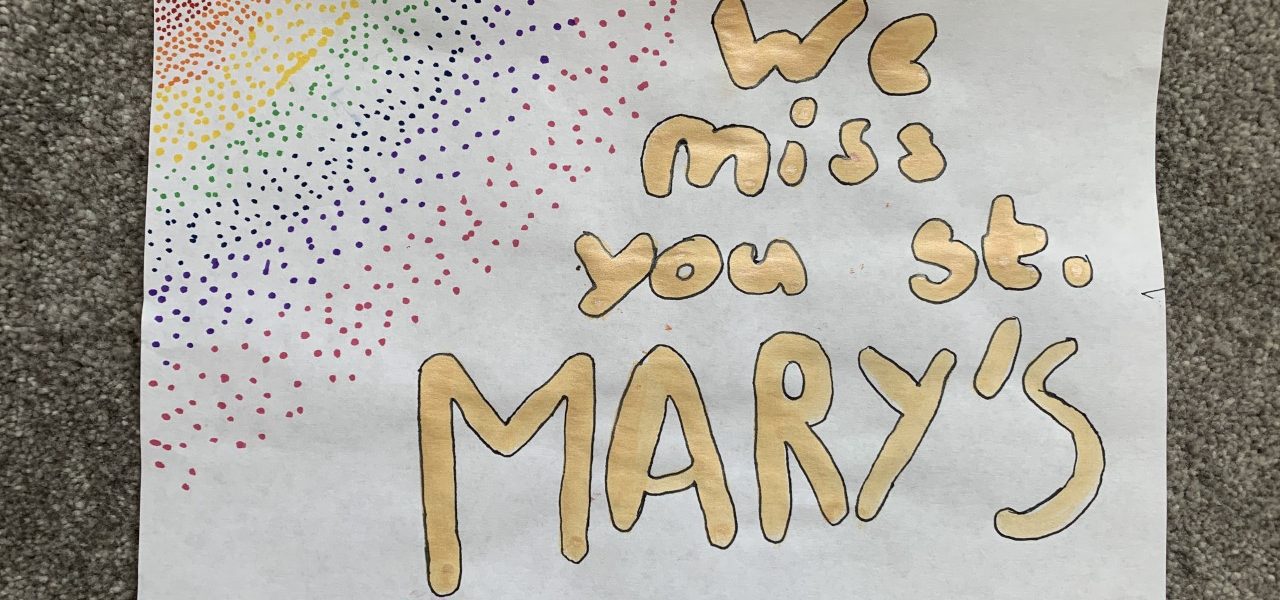 We
miss
you st.
MARY'S